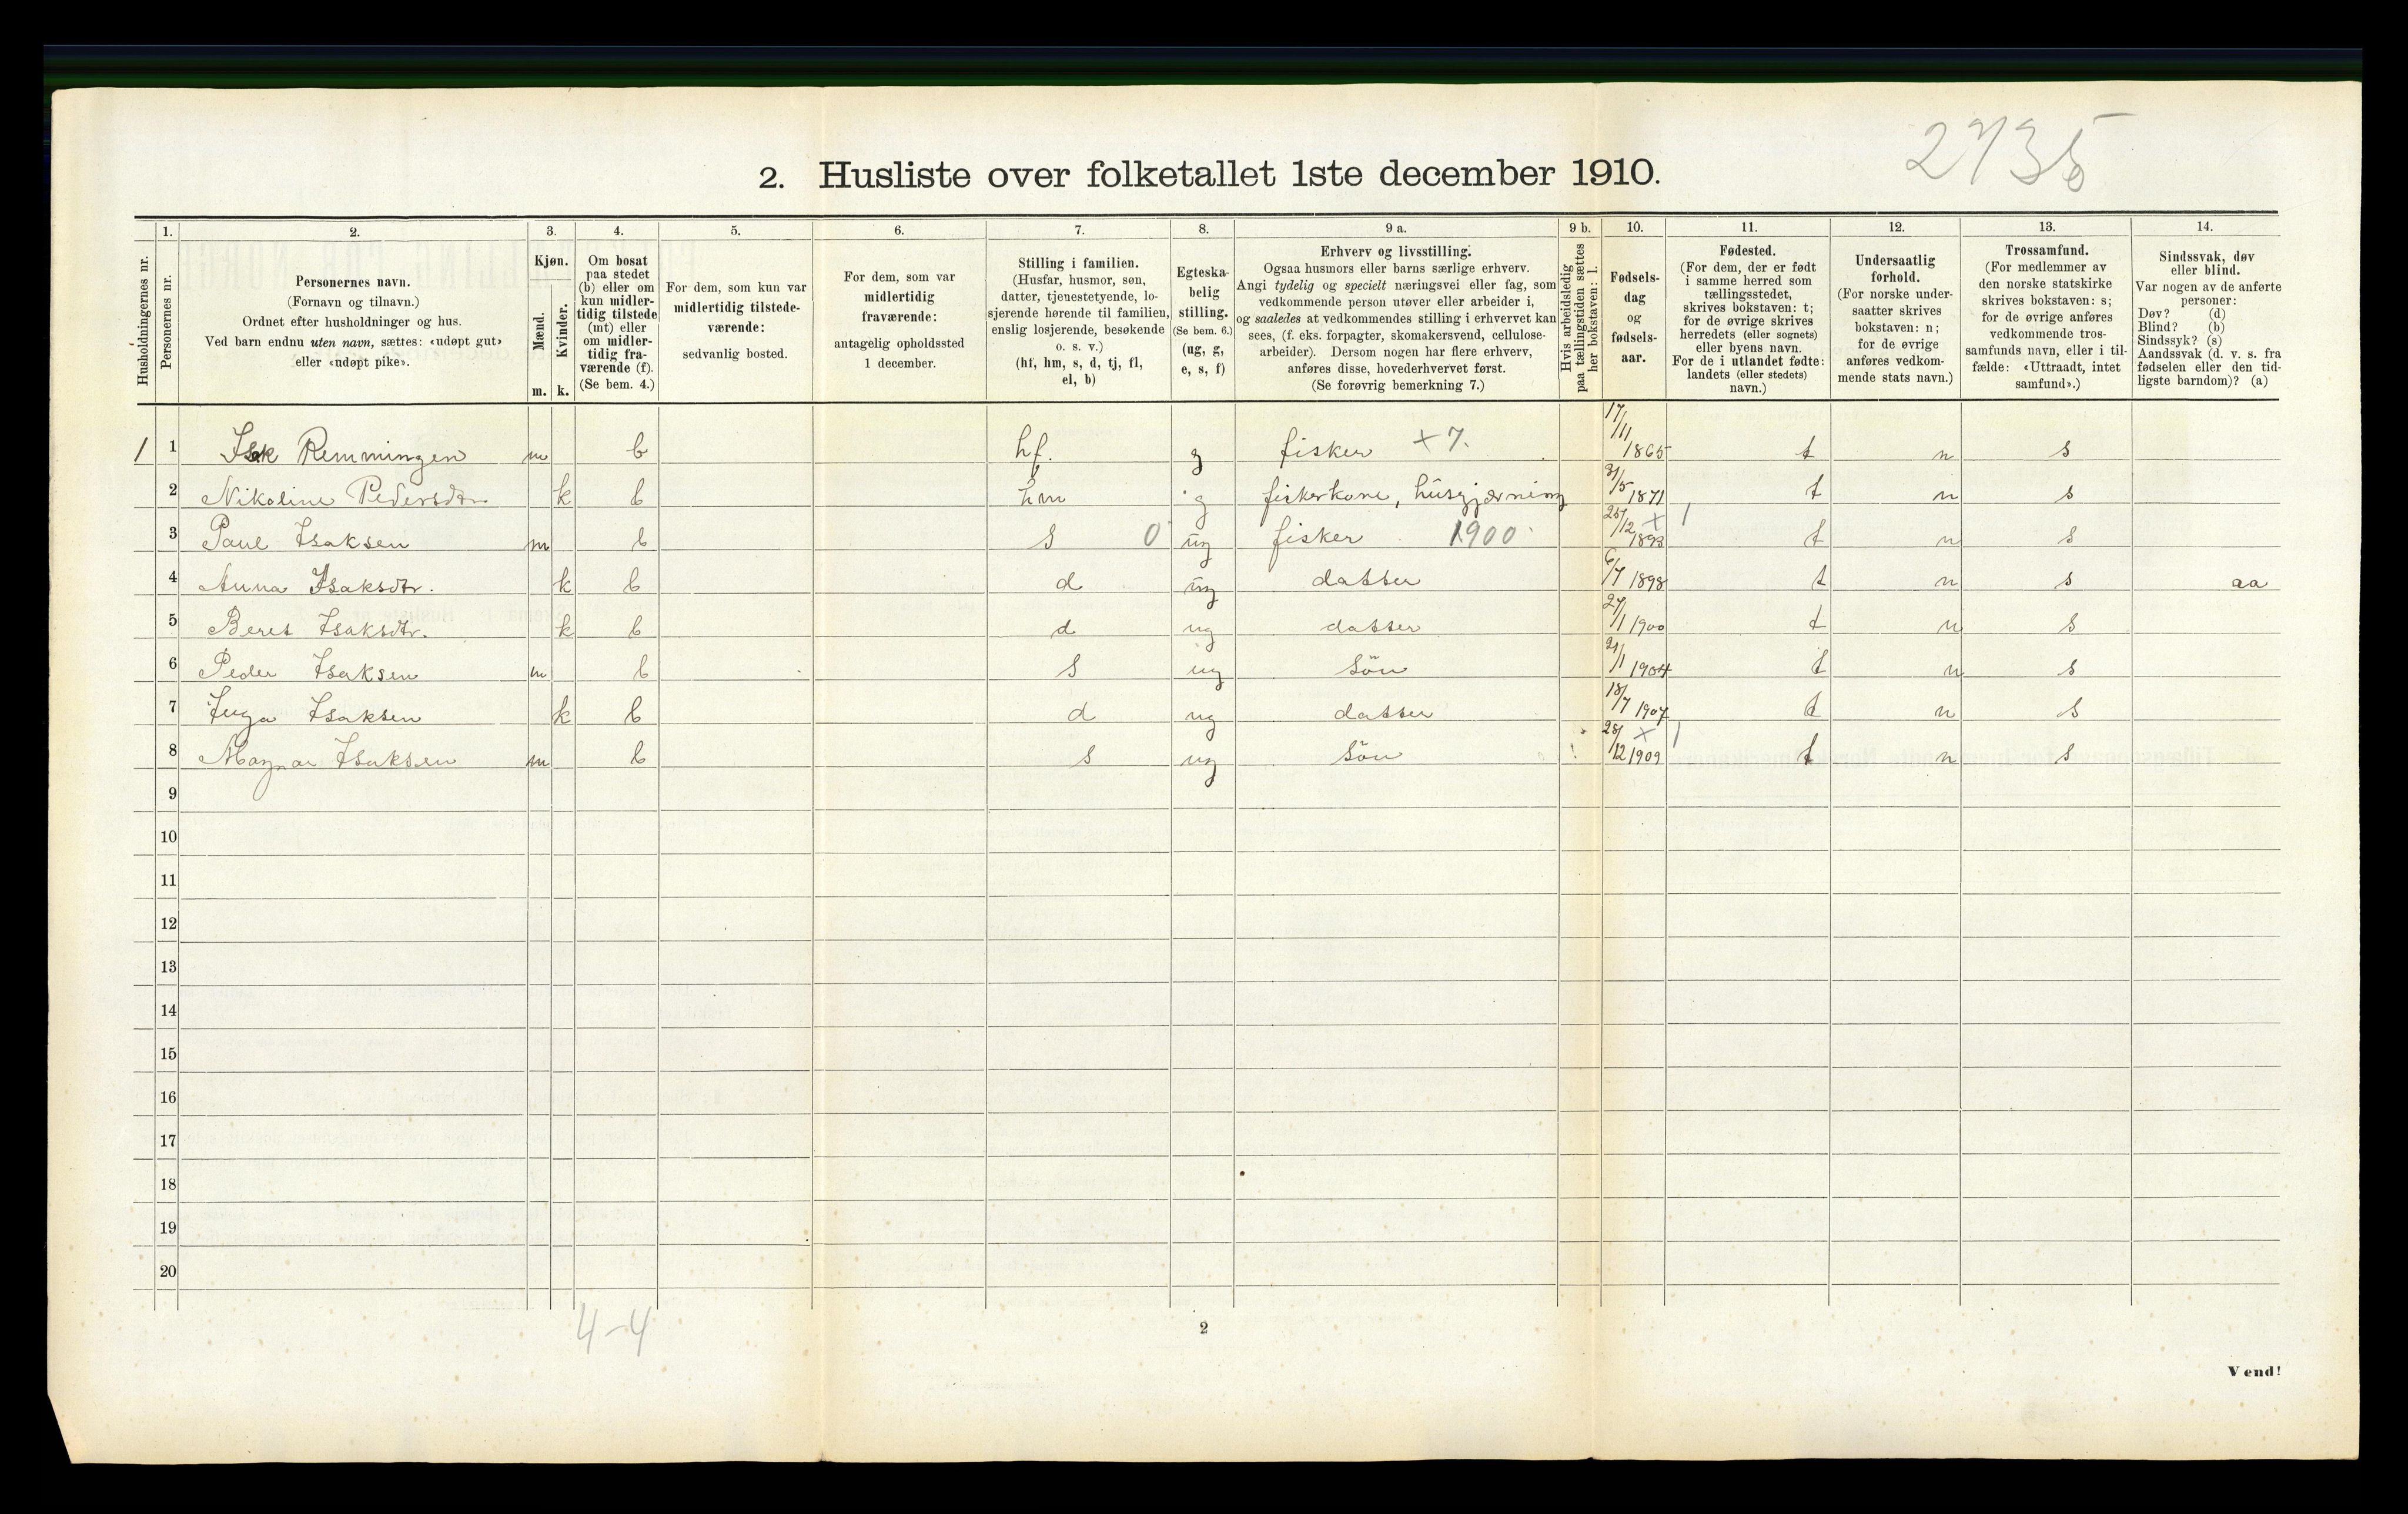 2735
2. Husliste over folketallet 1ste december 1910.
Husholdningernes nr.
1.
Personernes nr.
2.
Personernes navn.
(Fornavn og tilnavn.)
Ordnet efter husholdninger og hus.
Ved barn endnu uten navn, sættes: «udøpt gut»
eller «udøpt pike».
3.
Kjøn.
Mænd.
Kvinder.
m. k.
4.
Om bosat
paa stedet
(b) eller om
kun midler-
tidig tilstede
(mt) eller
om midler-
tidig fra-
værende (f).
(Se bem. 4.)
5.
For dem, som kun var
midlertidig tilstede-
værende:
sedvanlig bosted.
6.
For dem, som var
midlertidig
fraværende:
antagelig opholdssted
1 december.
7.
Stilling i familien.
(Husfar, husmor, søn,
datter, tjenestetyende, lo-
sjerende hørende til familien,
enslig losjerende, besøkende
o. s. v.)
(hf, hm, s, d, tj, fl,
el, b)
8.
Egteska-
belig
stilling.
(Se bem. 6.)
(ug, g,
e, s, f)
9 a.
Erhverv og livsstilling.
Ogsaa husmors eller barns særlige erhverv.
Angi tydelig og specielt næringsvei eller fag, som
vedkommende person utøver eller arbeider i,
og saaledes at vedkommendes stilling i erhvervet kan
sees, (f. eks. forpagter, skomakersvend, cellulose-
arbeider). Dersom nogen har flere erhverv,
anføres disse, hovederhvervet først.
(Se forøvrig bemerkning 7.)
9 b.
Hvis arbeidsledig
paa tællingstiden sættes
her bokstaven: l.
10.
Fødsels-
dag
og
fødsels-
aar.
11.
Fødested.
(For dem, der er født
i samme herred som
tællingsstedet,
skrives bokstaven: t;
for de øvrige skrives
herredets (eller sognets)
eller byens navn.
For de i utlandet fødte:
landets (eller stedets)
navn.)
12.
Undersaatlig
forhold.
(For norske under-
saatter skrives
bokstaven: n;
for de øvrige
anføres vedkom-
mende stats navn.)
13.
Trossamfund.
(For medlemmer av
den norske statskirke
skrives bokstaven: s;
for de øvrige anføres
vedkommende tros-
samfunds navn, eller i til-
fælde: «Uttraadt, intet
samfund».)
14.
Sindssvak, døv
eller blind.
Var nogen av de anførte
personer:
Døv? (d)
Blind? (b)
Sindssyk? (s)
Aandssvak (d. v. s. fra
fødselen eller den tid-
ligste barndom)? (a)
1 1 Isak Remmingen m b hf. g fisker +7. 17/11 1865 t n s
2 Nikoline Pedersdtr k b hm g fiskerkone, husgjærning 31/5 1871 t n s
3 Paul Isaksen m b s 0 ug fisker 1900 25/12 1893 t n s
4 Anna Isaksdtr. k b d ug datter 6/7 1898 t n s aa
5 Beret Isaksdtr. k b d ug datter 27/1 1900 t n s
6 Peder Isaksen m b s ug Sön 21/1 1904 t n s
7 Inga Isaksen k b d ug datter 18/7 1907 t n s
8 Magnar Isaksen m b s ug Sön 28/12 1909 t n s
9
10
11
12
13
14
15
16
17
18
19
20
4-4
2
Vend!